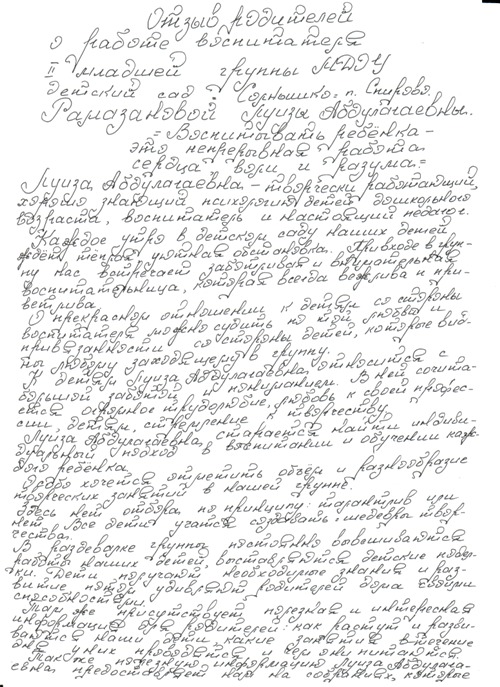 Отзыв родителей
о работе воспитателя
II младшей группы МБДОУ
детский сад "Солнышко" п. Спирово
Рамазановой Луизы Абдулагаевны.
"Воспитывать ребёнка -
это непрерывная работа
сердца воли и разума."
Луиза Абдулагаевна - творчески работающий,
хорошо знающий психологию детей дошкольного
возраста, воспитатель и настоящий педагог.
Каждое утро в детском саду наших детей
ждёт тёплая, уютная обстановка. При входе в груп-
пу нас встречает заботливая и внимательная
воспитательница, которая всегда вежлива и при-
ветлива.
О прекрасном отношении к детям со стороны
воспитателя можно судить по той любви и
привязанности со стороны детей, которые вид-
ны любому заходящему в группу.
К детям Луиза Абдулагаевна, относится с
большой заботой и пониманием. В ней сочета-
ется огромное трудолюбие, любовь к своей профес-
сии, детям, стремление к творчеству.
Луиза Абдулагаевна, старается найти индиви-
дуальный подход в воспитании и обучении каж-
дого ребёнка.
Особо хочется отметить объём и разнообразие
творческих занятий в нашей группе.
Здесь нет отбора по принципу: талантлив или
нет. Все дети учатся создавать шедевры твор-
чества.
В раздевалке группы постоянно вывешиваются
работы наших детей, выставляются детские подел-
ки. Дети получают необходимые знания и раз-
витие потом удивляют родителей дома своими
способностями.
Там же присутствует полезная и интересная
информация для родителей: как растут и разви-
ваются наши дети какие занятия в течение
дня у них проводятся и чем они питаются.
Также полезную информацию Луиза Абдулага-
евна предоставляет нам на собраниях, которые